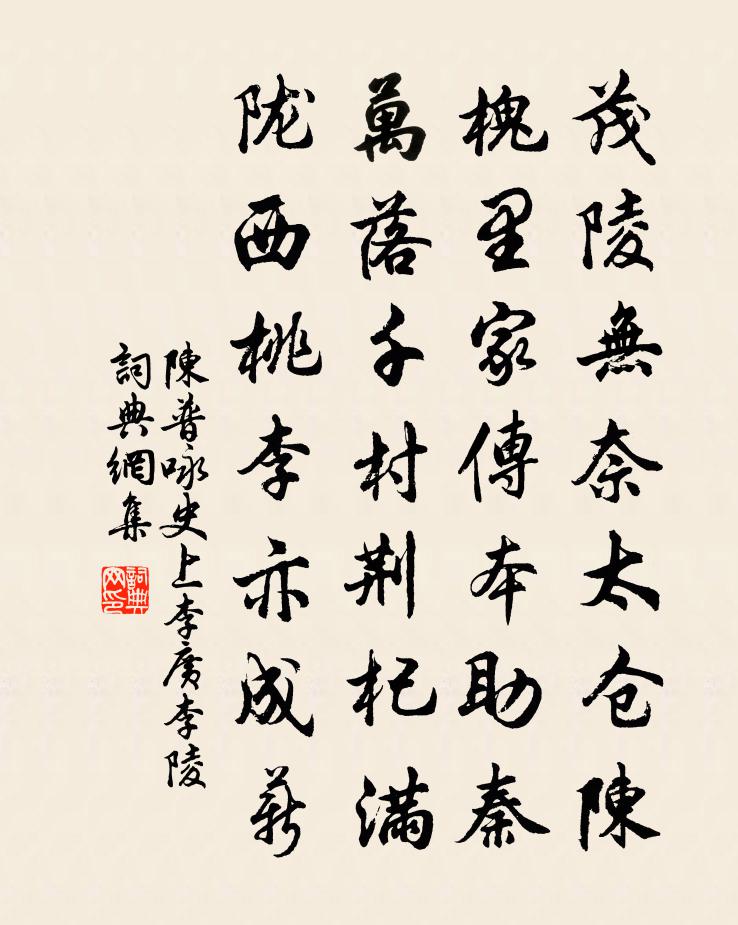 茂陵無奈太仓陳
槐里家傳本助秦
萬落千村荆杞滿
陇西桃李亦成薪
陳普咏史上李廣李陵
詞典網集
詞典网印